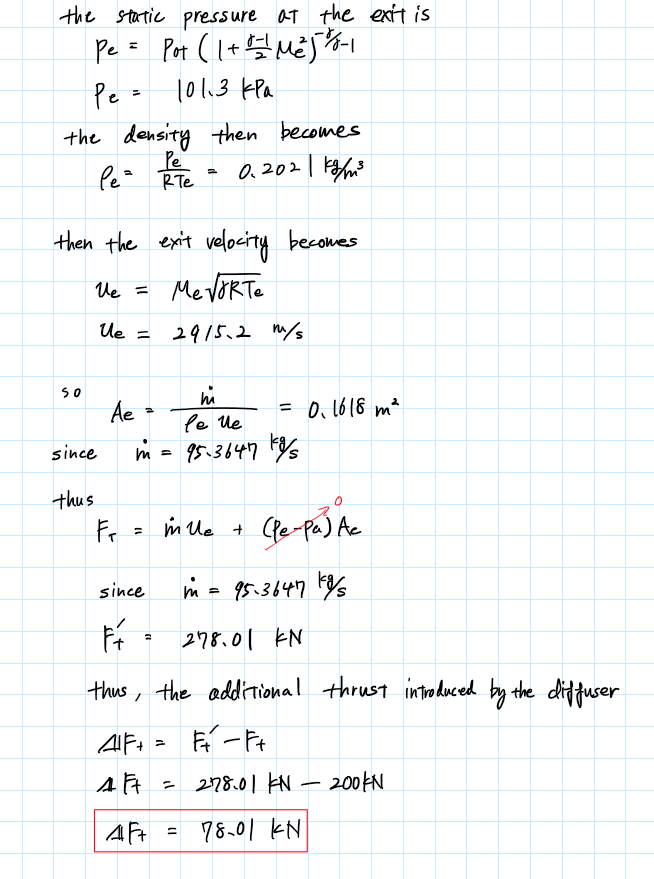 the static pressure at the exit is
Pe = Pot (1 + γ-1/2 Me²)^-γ/γ-1
Pe = 101.3 kPa
the density then becomes
ρe = Pe/RTe = 0.2021 kg/m³
then the exit velocity becomes
ue = Me√γRTe
ue = 2915.2 m/s
so Ae = ṁ/ρe ue = 0.1618 m²
since ṁ = 95.3647 kg/s
thus
FT = ṁ ue + (Pe-Pa) Ae 0
since ṁ = 95.3647 kg/s
Ft′ = 278.01 kN
thus, the additional thrust introduced by the diffuser
ΔFt = Ft′ - Ft
ΔFt = 278.01 kN - 200kN
ΔFt = 78.01 kN